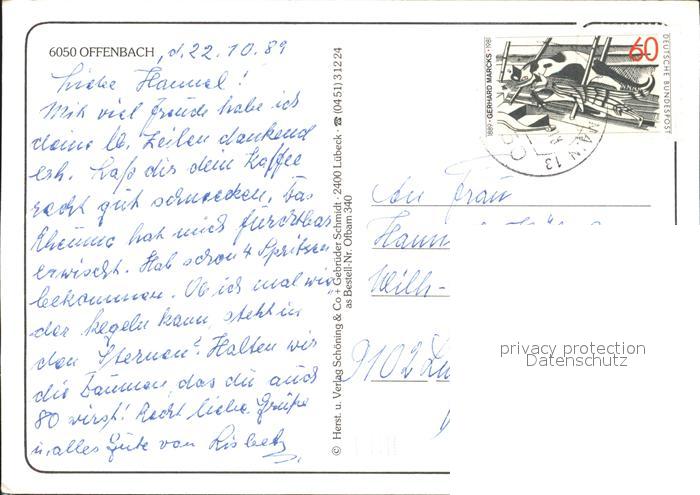 6050 OFFENBACH, d. 22.10.89
Liebe Hannel!
Mit viel Freude habe ich
deine lb. Zeilen dankend
erh. Laß dir dem Kaffee
recht gut schmecken. Das
Rheuma hat mich furchtbar
erwischt. Hab schon 4 Spritzen
bekommen. Ob ich mal wie-
der kegeln kann, steht in
den Sternen. Halten wir
die Daumen das du auch
80 wirst! Recht liebe Grüße
u. alles Gute von Lisbeth
© Herst. u. Verlag Schöning & Co + Gebrüder Schmidt · 2400 Lübeck · ☎ (04 51) 3 12 24
as Bestell-Nr. Ofbam 340
1889-GERHARD MARCKS-1981
60
DEUTSCHE BUNDESPOST
MAIN 13
An Frau
Hann
Wilh-
9102
privacy protection
Datenschutz